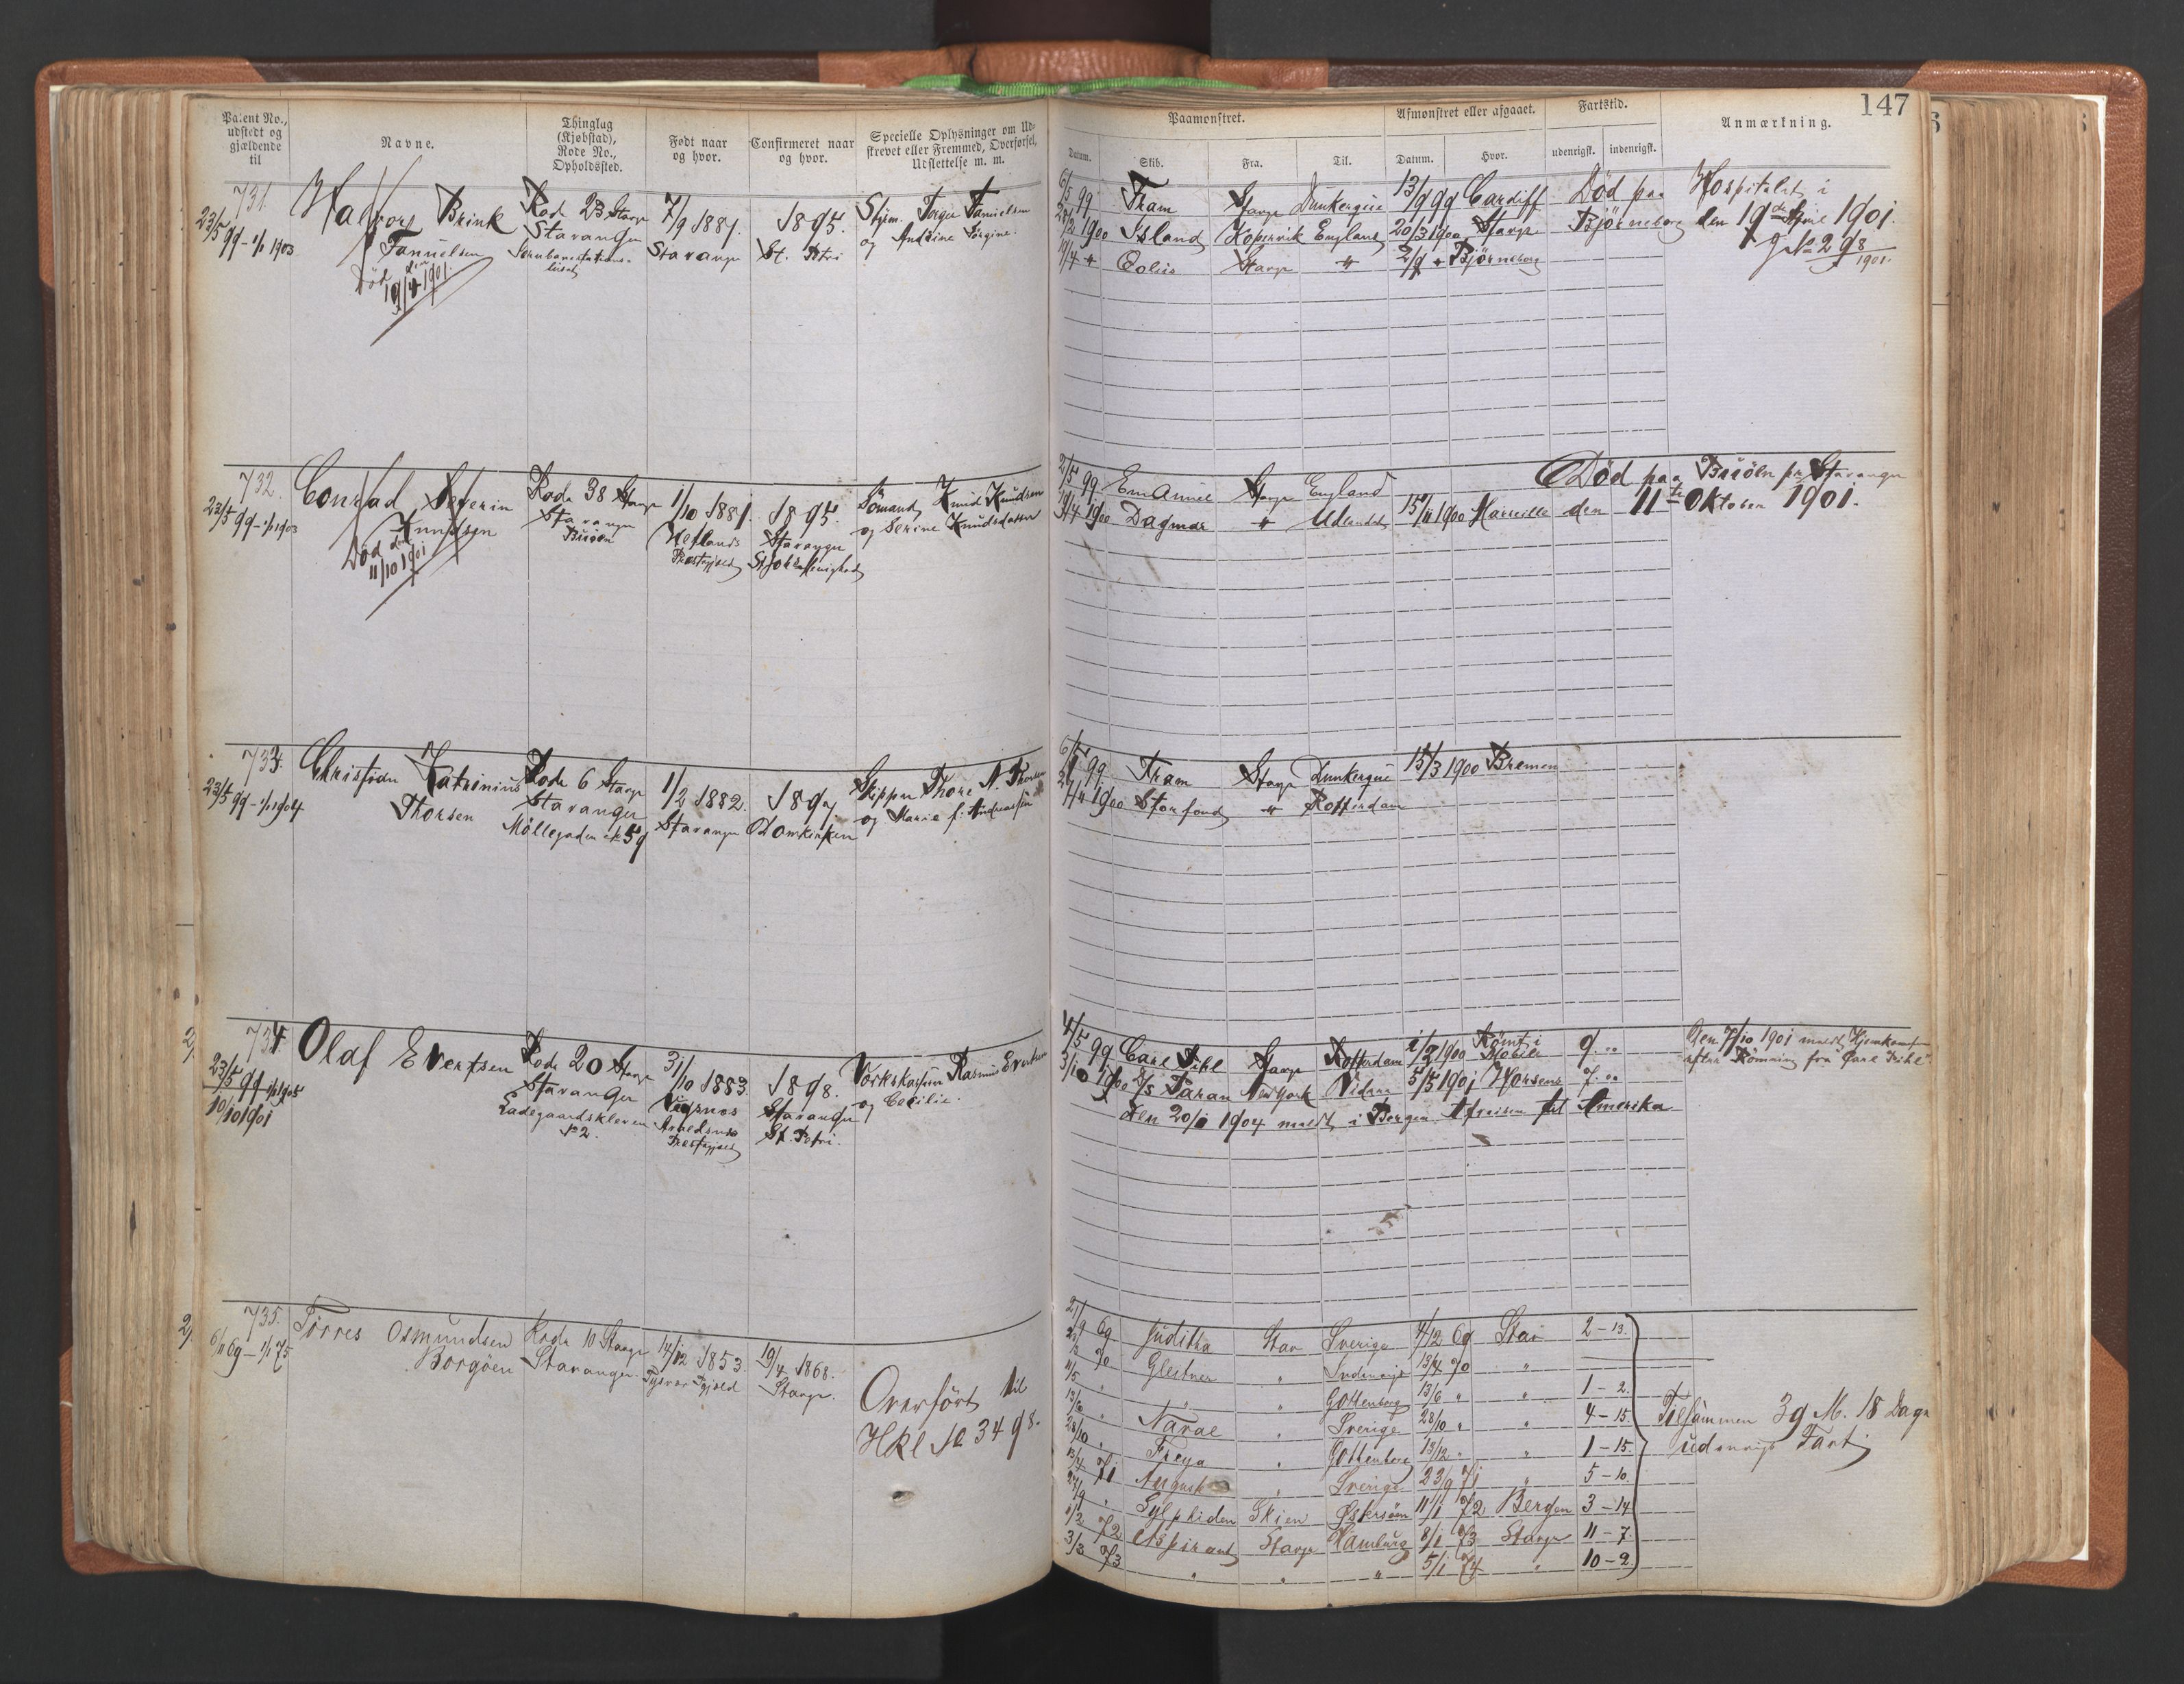 Patent No., udstedt og gjældende til
Navne.
Thinglag (Kjøbstad), Rode No., Opholdssted.
Født naar og hvor.
Confirmeret naar og hvor.
Specielle Oplysninger om Udskrevet eller Fremmed, Overførsel, Udslettelse m. m.
Paamønstret.
Afmønstret eller afgaaet.
Fartstid.
Anmærkning.
147
Datum.
Skib.
Fra.
Til.
Datum.
Hvor.
udenrigsk.
indenrigsk.
731.
23/5 99 - 1/1 1903
Halvor Brink
Tanuelsen
Død den
19/4 1901.
Rode 23 Stavgr
Stavanger
7/9 1881.
Stavanger
1895.
St. Petri
Stjrm. Torger Tanuelsen
og Andrine Jørgine.
6/5 99 Fram Stavgr Dunkerque 13/9 99 Cardiff Død paa Hospitalet i
1900 Island Kopervik England 20/3 1900 Stavgr Bjørneborg den 19de April 1901.
19/4 " Eolus Stavgr " 2/9 " Bjørneborg Jr No 298/1901.
732.
23/5 99 - 1/1 1903
Conrad Severin
Knudsen
Død den
11/10 1901
Rode 38 Stavgr
Stavanger
Buøen
1/10 1881.
Hetlands
Præstegjæld
1895.
Stavanger
St Johs Menighed
Sømand Knud Knudsen
og Serine Knudsdatter
2/5 99 Emanuel Stavgr England Død paa Buöen pr Stavanger
19/4 1900 Dagmar " Udlandet 15/11 1900 Marseille den 11te Oktober 1901.
733.
23/5 99 - 1/1 1904
Christian Katrinius
Thorsen
Rode 6 Stavgr
Stavanger
Møllegaden No 59
1/2 1882.
Stavanger
1897
Domkirken
Skipper Thore N. Thorsen
og Marie f. Andreassen
6/5 99 Fram Stavgr Dunkerque 15/3 1900 Bremen
1900 Storfond " Rotterdam
734
23/5 99 - 1/1 1905
10/10 1901
Olaf Evertsen
Rode 20 Stavgr
Stavanger
Ladegaardskleven
No 2.
31/10 1883.
Vigsnes
Avaldsnes
Præstegjæld
1898.
Stavanger
St. Petri.
Værkskasserer Rasmus Evertsen
og Cecilie.
4/5 99 Carl Pihl Stavgr Rotterdam 1/2 1900 Rømt i Mobile 9 " Den 7/10 1901 meldt Hjemkomst
3/10 1900 S/S Taran New York Vidre 5/5 1901 Horsens 7 " efter Rømning fra "Carl Pihl"
Den 20/1 1904 meldt i Bergen Afreisen til Amerika
735.
6/11 69 - 1/1 75
Tørres Osmundsen
Borgøen
Rode 10 Stavgr
Stavanger.
14/12 1853.
Tysvær Pgjæld
19/4 1868.
Stavgr.
Overført til
Hkl No 3498.
21/9 69 Juditha Stav Sverige 4/12 69 Stav 2 - 13.
70 Gleitner " Indenrigs 13/4 70 "
11/5 " " " Gottenborg 13/6 " " 1 - 2.
13/6 " Narae " Sverige 28/10 " " 4 - 15. Tilsammen 39 M. 18 Dage
28/10 " Freya " Gottenborg 13/12 " " 1 - 15. udenrigs Fart
13/4 71 August " Sverige 23/9 71 " 5 - 10.
27/9 " Sylphiden Skien Østersøen 11/1 72 Bergen 3 - 14
1/2 72 Aspirant Stavgr Hamburg 8/1 73 Stavgr 11 - 7.
3/3 73 " " " 5/1 74 " 10 - 2